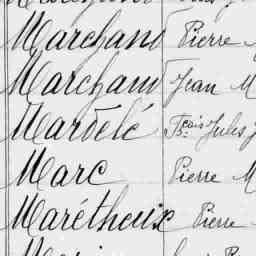 Marchand Pierre
Marchand Jean M
Mardelé Fçois Jules J
Marc Pierre M
Marétheux Pierre